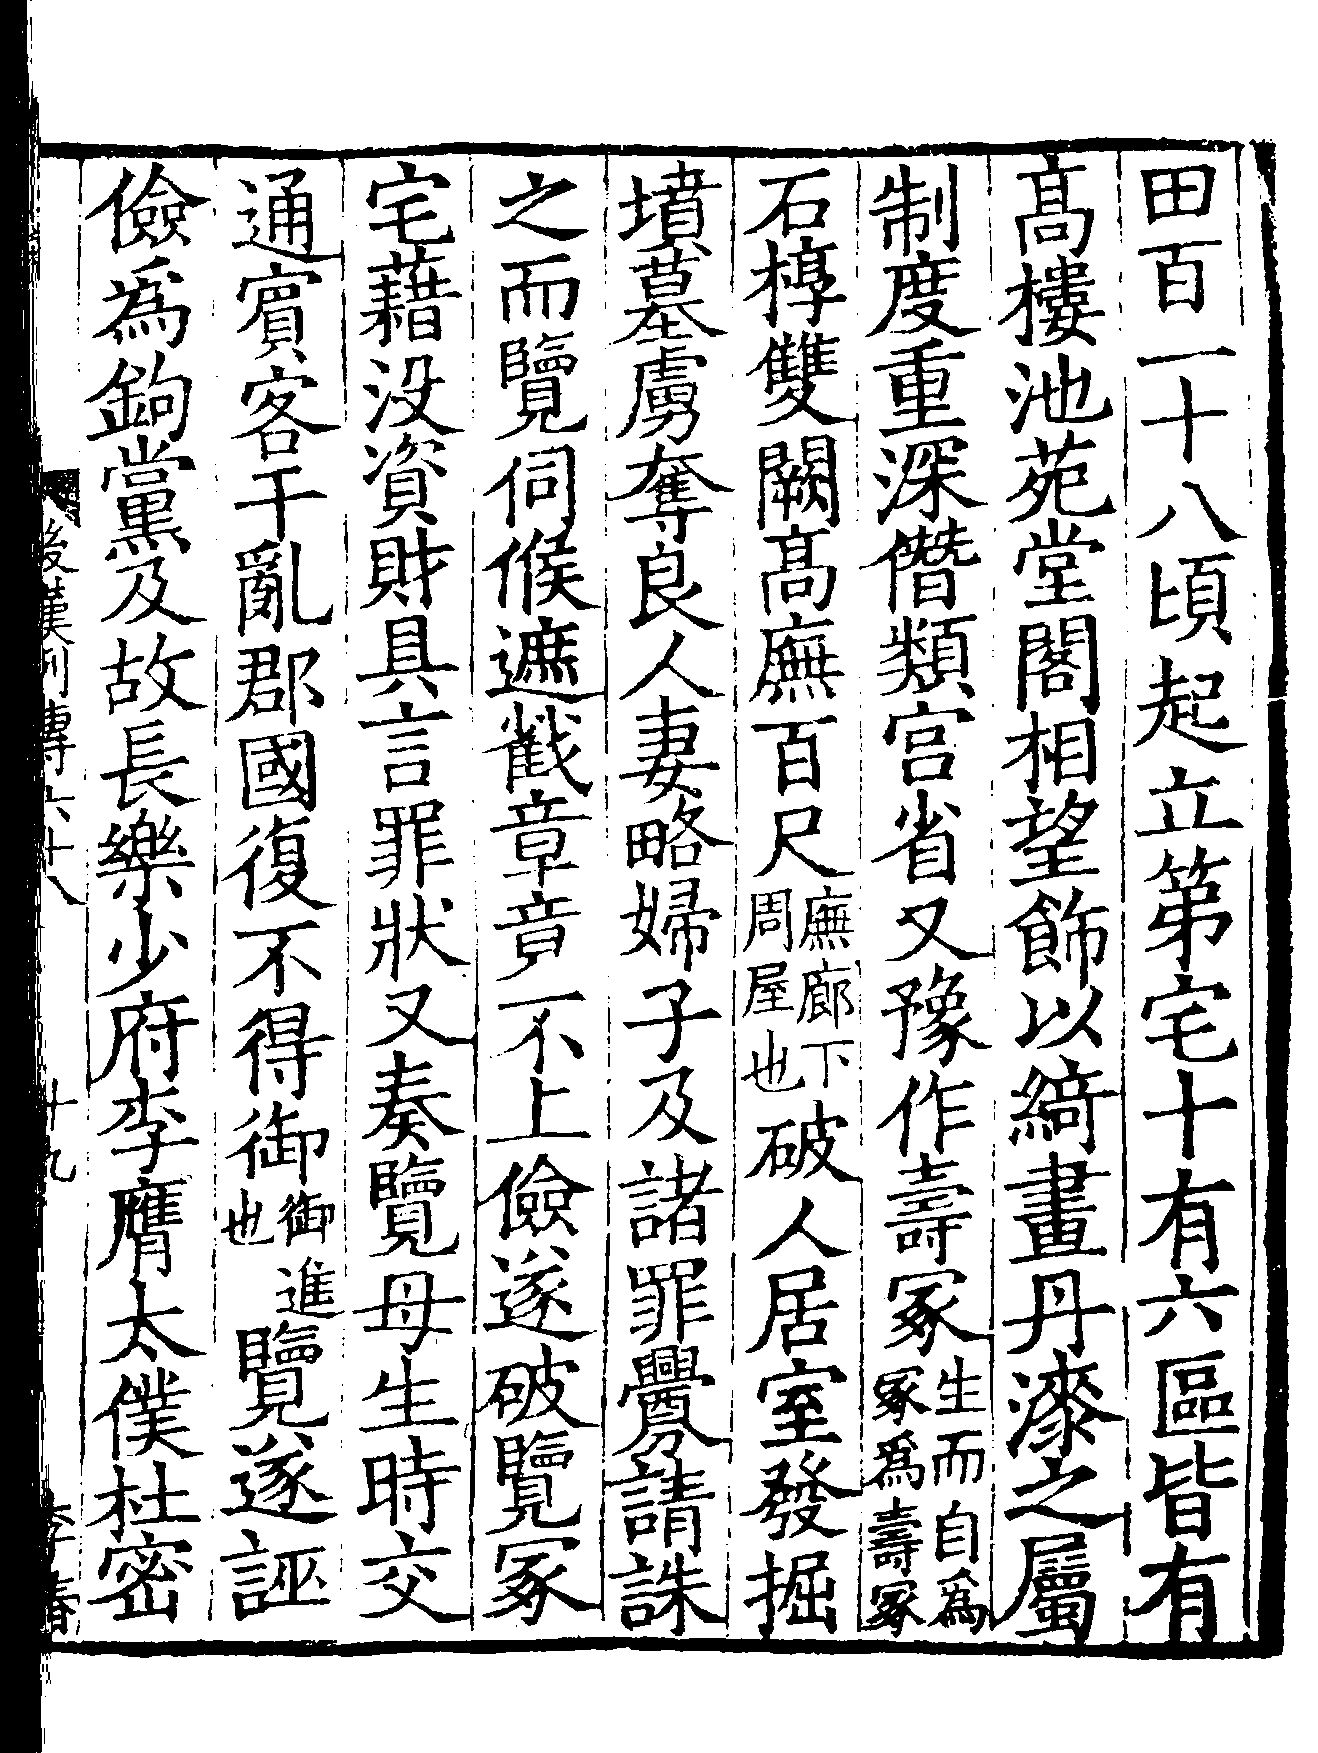 田百一十八頃起立第宅十有六區皆有
高樓池苑堂閣相望飾以綺畫丹漆之屬
制度重深僭類宮省又豫作壽冢生而自為冢為壽冢
石槨雙闕高廡百尺廡廊下周屋也破人居室發掘
墳墓虜奪良人妻略婦子及諸罪釁請誅
之而覽伺候遮截章竟不上儉遂破覽冢
宅藉没資財具言罪狀又奏覽母生時交
通賓客干亂郡國復不得御御進也覽遂誣
儉為鉤黨及故長樂少府李膺太僕杜密
後漢列傳六十八
十九
李春